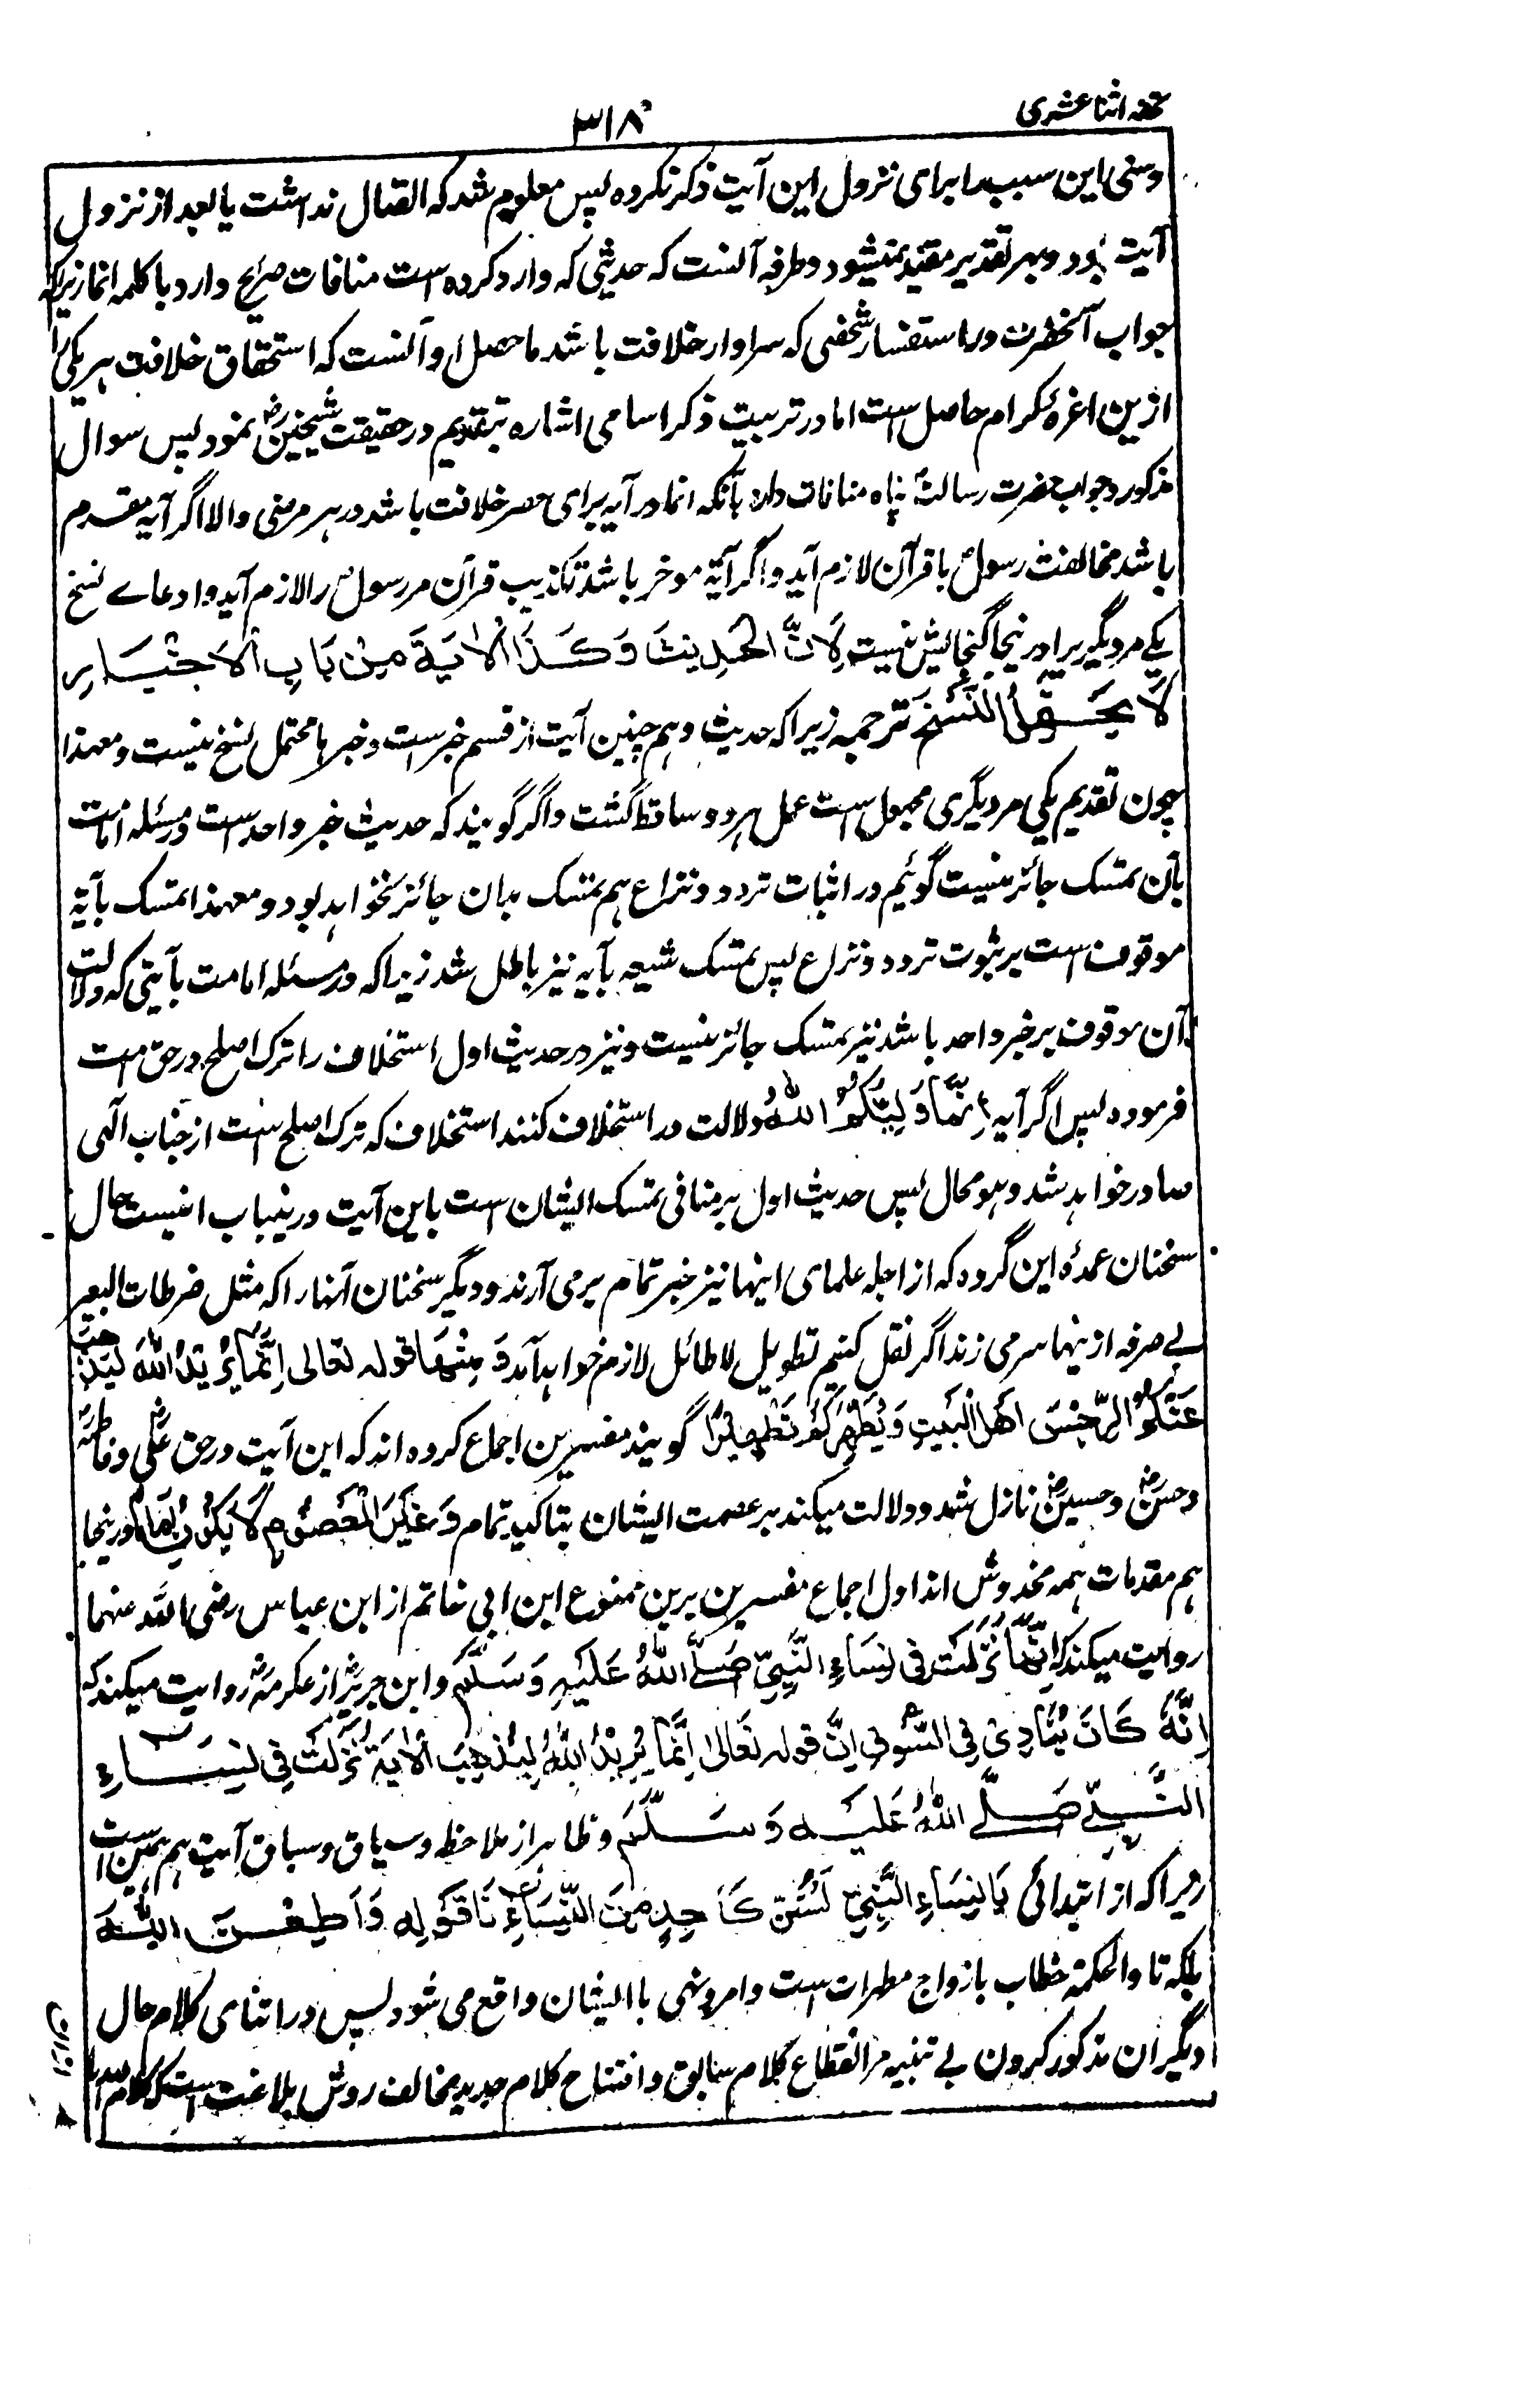 تحفه اثنا عشری
۳۱۸
وسنی این سبب را برای نزول این آیت ذکر نکرده پس معلوم شد که اتصال نداشت یا بعد از نزول
آیت بود و بهر تقدیر مفید نمیشود و طرفه آنست که حدیثی که وارد کرده است منافات صریح دارد با کلمه انما زیراکه
جواب آنحضرت در استفسار شخصی که سزاوار خلافت باشد ماحصل او آنست که استحقاق خلافت هر یکی را
ازین اعزهٔ کرام حاصل است اما در ترتیب ذکر اسامی اشاره بتقدیم در حقیقت شیخینؓ نمود پس سوال
مذکور و جواب حضرت رسالت پناه منافات دارد بآنکه انما در آیه برای حصر خلافت باشد در هر مرضی والا اگر آیه مقدم
باشد مخالفت رسولؐ با قرآن لازم آید و اگر آیة موخر باشد تکذیب قرآن مر رسولؐ را لازم آید و ادعاے نسخ
یکے مر دیگریرا درینجا گنجایش نیست لِاَنَّ الحَدِیثَ وَکَذَا الْاٰیَةَ مِنْ بَابِ الْاَخْبَارِ
لَا یَحْتَمِلُ النَّسْخَ ترجمه زیراکه حدیث و هم چنین آیت از قسم خبر است و خبرها محتمل نسخ نیست و معهذا
چون تقدیم یکی مر دیگری مجهول است عمل بهر دو ساقط گشت و اگر گویند که حدیث خبر واحد است و در مسئله امامت
بآن تمسک جائز نیست گوئیم در اثبات تردد و نزاع هم تمسک بدان جائز نخواهد بود و معهذا تمسک بآیة
موقوف است بر ثبوت تردد و نزاع پس تمسک شیعه بآیه نیز باطل شد زیراکه در مسئله امامت بآیتی که دلالت
آن موقوف بر خبر واحد باشد نیز تمسک جائز نیست و نیز در حدیث اول استخلاف را ترک اصلح در حق امت
فرموده پس اگر آیه اِنَّمَا وَلِیُّکُمُ اللهُ دلالت در استخلاف کنند استخلاف که ترک اصلح است از جناب الٓهی
صادر خواهد شد و هو محال پس حدیث اول بر منافی تمسک ایشان است باین آیت درینباب اینست حال
سخنان عمدهٔ این گروه که از اجله علمای اینها نیز خبر تمام بر می آرند و دیگر سخنان آنها را که مثل ضرطات البعیر
بے صرفه از ینها سر می زند اگر نقل کنیم تطویل لا طائل لازم خواهد آمد وَ مِنْهَا قوله تعالی اِنَّمَا یُرِیْدُ اللهُ لِیُذْهِبَ
عَنْکُمُ الرِّجْسَ اَهْلَ الْبَیْتِ وَیُطَهِّرَکُمْ تَطْهِیْرًا گویند مفسرین اجماع کرده اند که این آیت در حق علیؓ و فاطمهؓ
و حسنؓ و حسینؓ نازل شد و دلالت میکند بر عصمت ایشان بتاکید تمام وَغَیْرُ الْمَعْصُوْمِ لَا یَکُوْنُ اِمَامًا و درینجا
هم مقدمات همه مخدوش اند اول اجماع مفسرین برین ممنوع ابن ابی حاتم از ابن عباس رضی الله عنهما
روایت میکند که اِنَّمَا نُزِّلَتْ فِی نِسَاءِ النَّبِیِّ صَلَّی اللهُ عَلَیْهِ وَسَلَّمَ و ابن جریرؓ از عکرمهؓ روایت میکند که
اِنَّهُ کَانَ یُنَادِیْ فِی السُّوْقِ اِنَّ قوله تَعَالٰی اِنَّمَا یُرِیْدُ اللهُ لِیُذْهِبَ اَلْاٰیَةَ نُزِّلَتْ فِی نِسَاءِ
النَّبِیِّ صَلَّی اللهُ عَلَیْهِ وَسَلَّمَ و ظاهر از ملاحظه و سیاق و سباق آیت هم همین است
زیراکه از ابتدائی یَا نِسَاءَ النَّبِیِّ لَسْتُنَّ کَاَحَدٍ مِنَ النِّسَاءِ تَا قَوْلِهِ وَاَطِعْنَ اللهَ
بلکه تا والحکمة خطاب بازواج مطهرات است و امر و نهی با ایشان واقع می شود پس در اثنای کلام حال
دیگران مذکور کردن بے تنبیه مر انقطاع کلام سابق و افتتاح کلام جدید مخالف روش بلاغت است که کلام الله